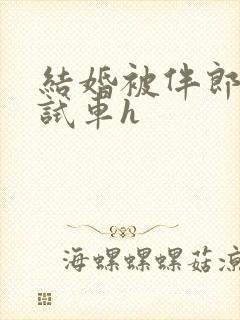 結婚被伴郎
試車h
海螺螺螺菇凉